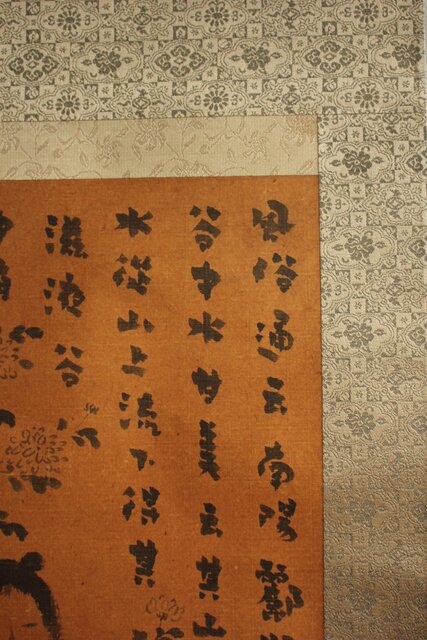 風俗通云南陽酈
谷中水甘美云其山
水從山上流下得其
滋液谷